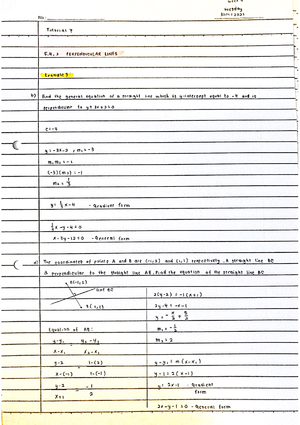 No.:
Tuesday
Tutorial 9
F.N.3 PERPENDICULAR LINES
Example 3
b) Find the general equation of a straight line which is y-intercept equal to -4 and is
perpendicular to y+3x+3=0
c=-4
y=-3x-3, m₁=-3
m₁m₂=-1
(-3)(m₂)=-1
m₂=1/3
y=1/3x-4 -Gradient form
1/3x-y-4=0
x-3y-12=0 -General form
d) The coordinates of points A and B are (-1,2) and (1,1) respectively. A straight line BC
is perpendicular to the straight line AB. Find the equation of the straight line BC
A(-1,2)
B(1,1)
Equation of AB:
y-y₁/x-x₁ = y₂-y₁/x₂-x₁
y-2/x-(-1) = 1-(2)/1-(-1)
y-2/x+1 = -1/2
2(y-2)=-1(x+1)
2y-4=-x-1
y=-x/2+3/2
m₁=-1/2
m₂=2
y-y₁=m(x-x₁)
y-1=2(x-1)
y=2x-1 -Gradient
form
2x-y-1=0 -General form